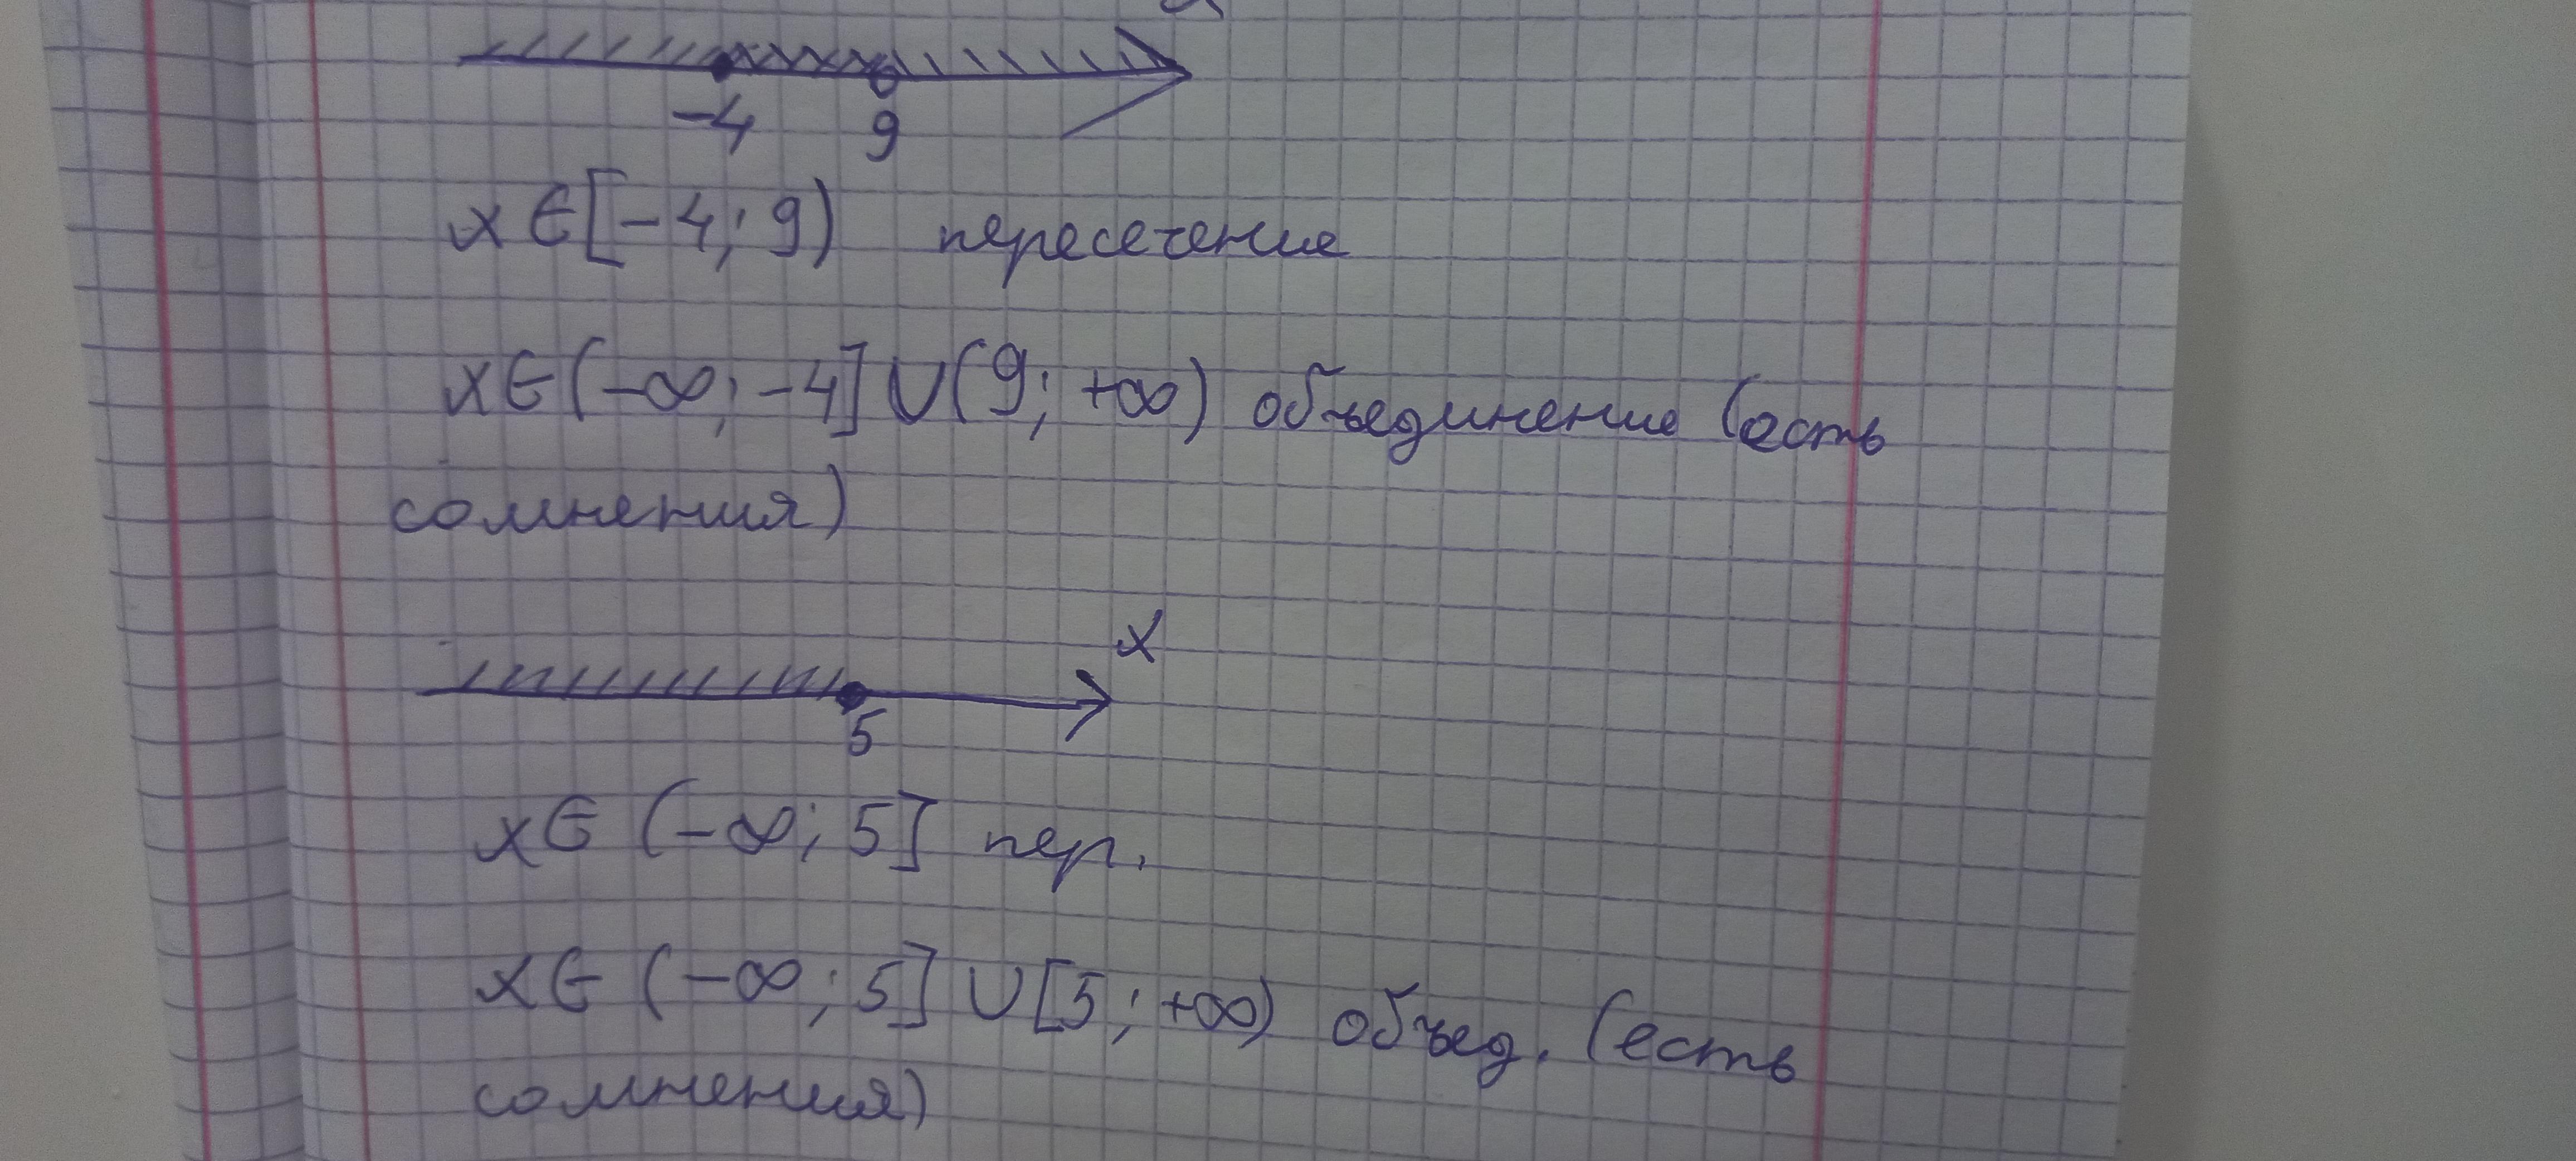 -4 9
x∈[-4; 9) пересечение
x∈(-∞; -4]∪(9; +∞) объединение (есть
сомнения)
x
5
x∈ (-∞; 5] пер.
x∈ (-∞; 5] ∪[5; +∞) объед. (есть
сомнения)